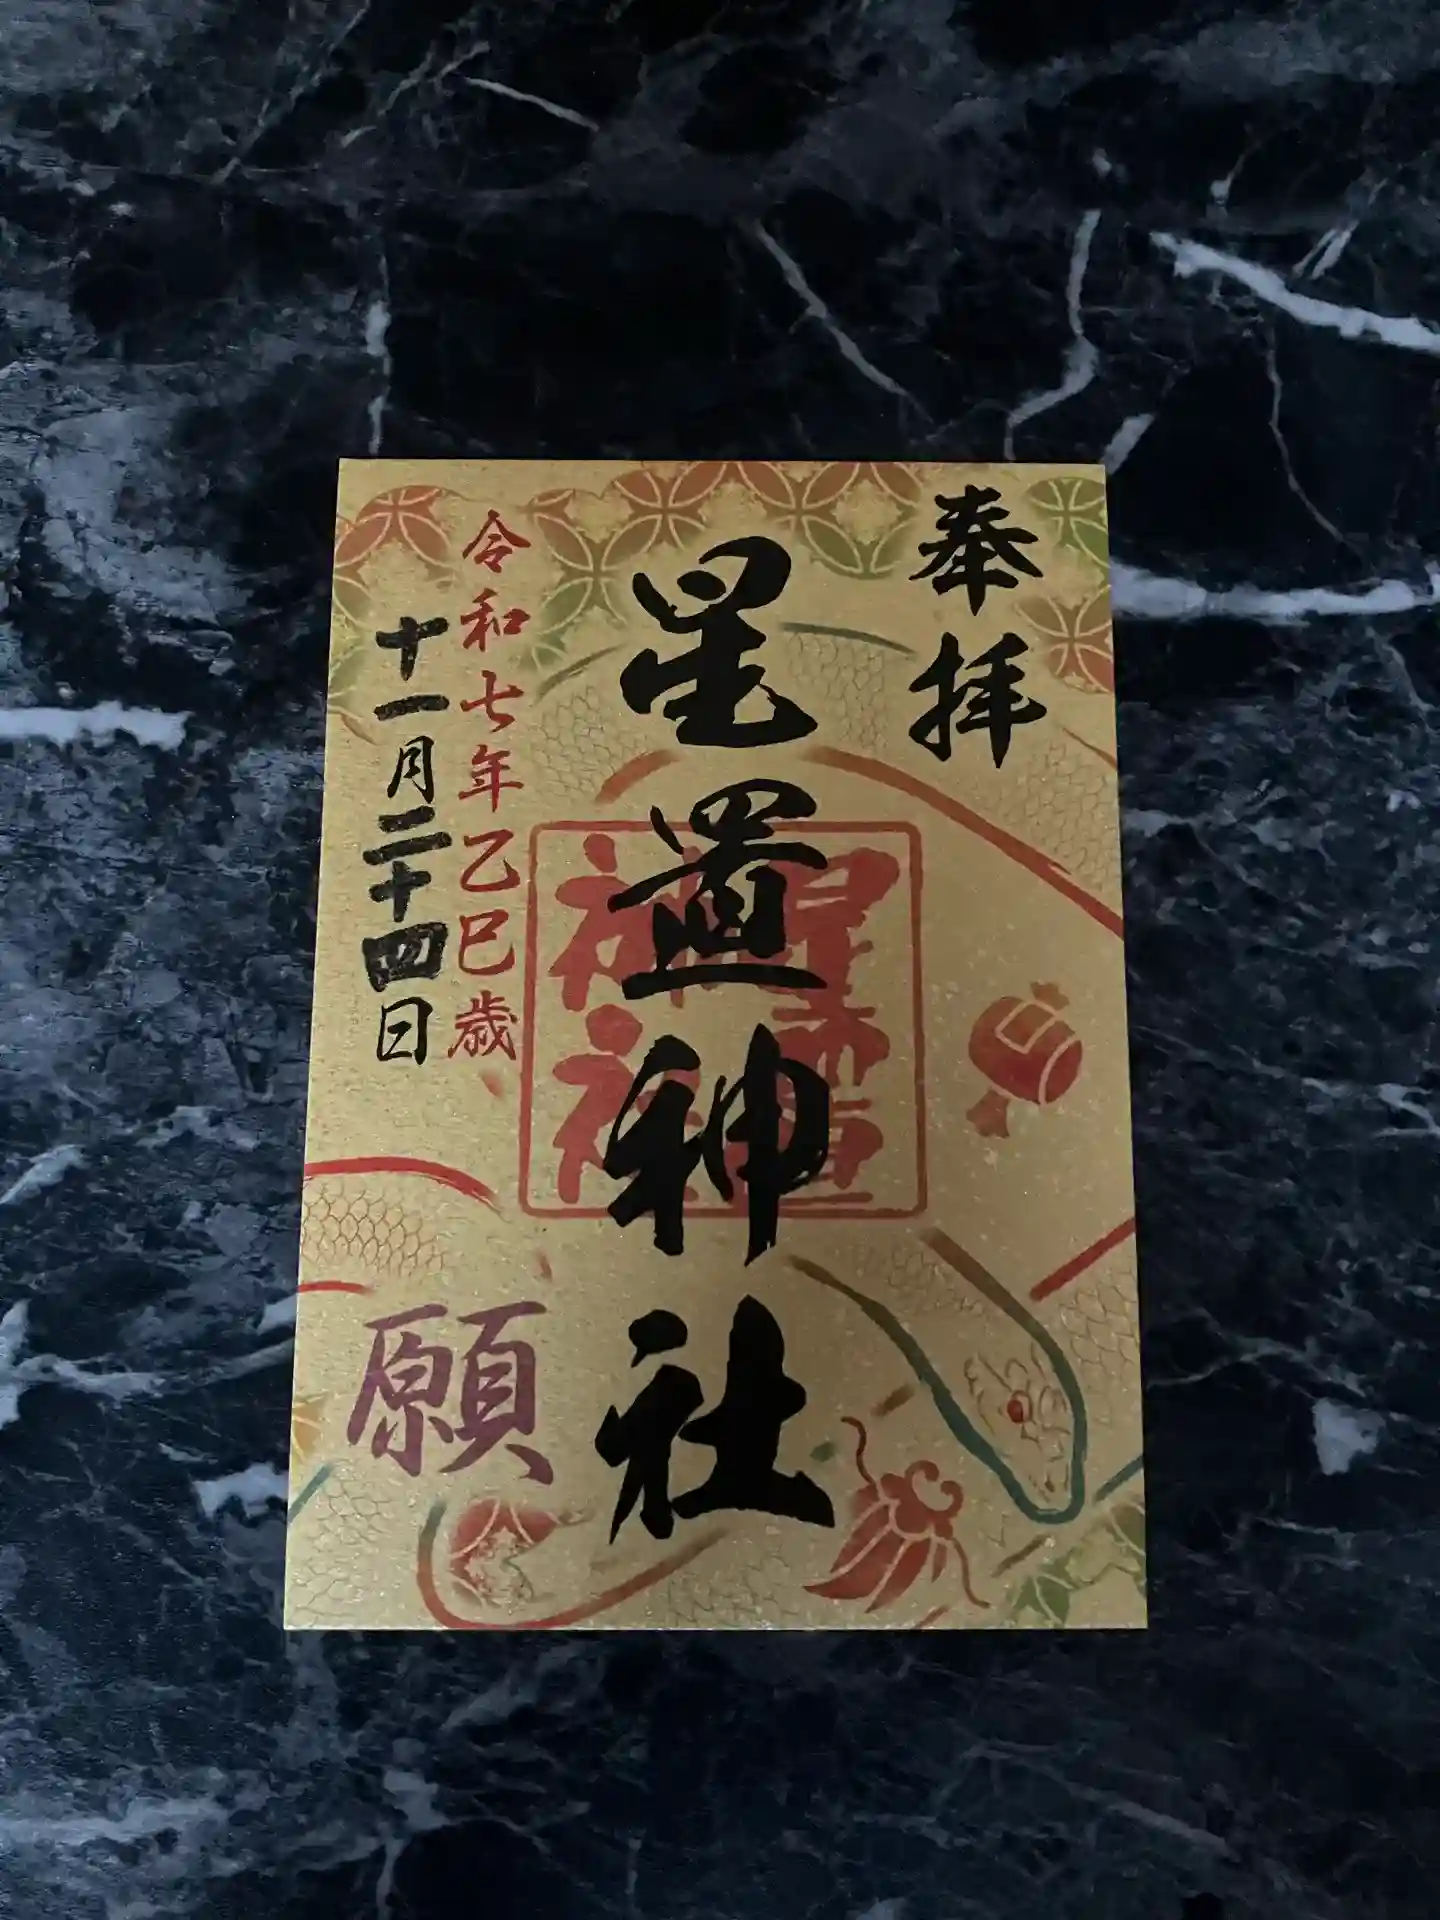 奉拝
星置神社
星置神社
令和七年乙巳歳
十一月二十四日
願